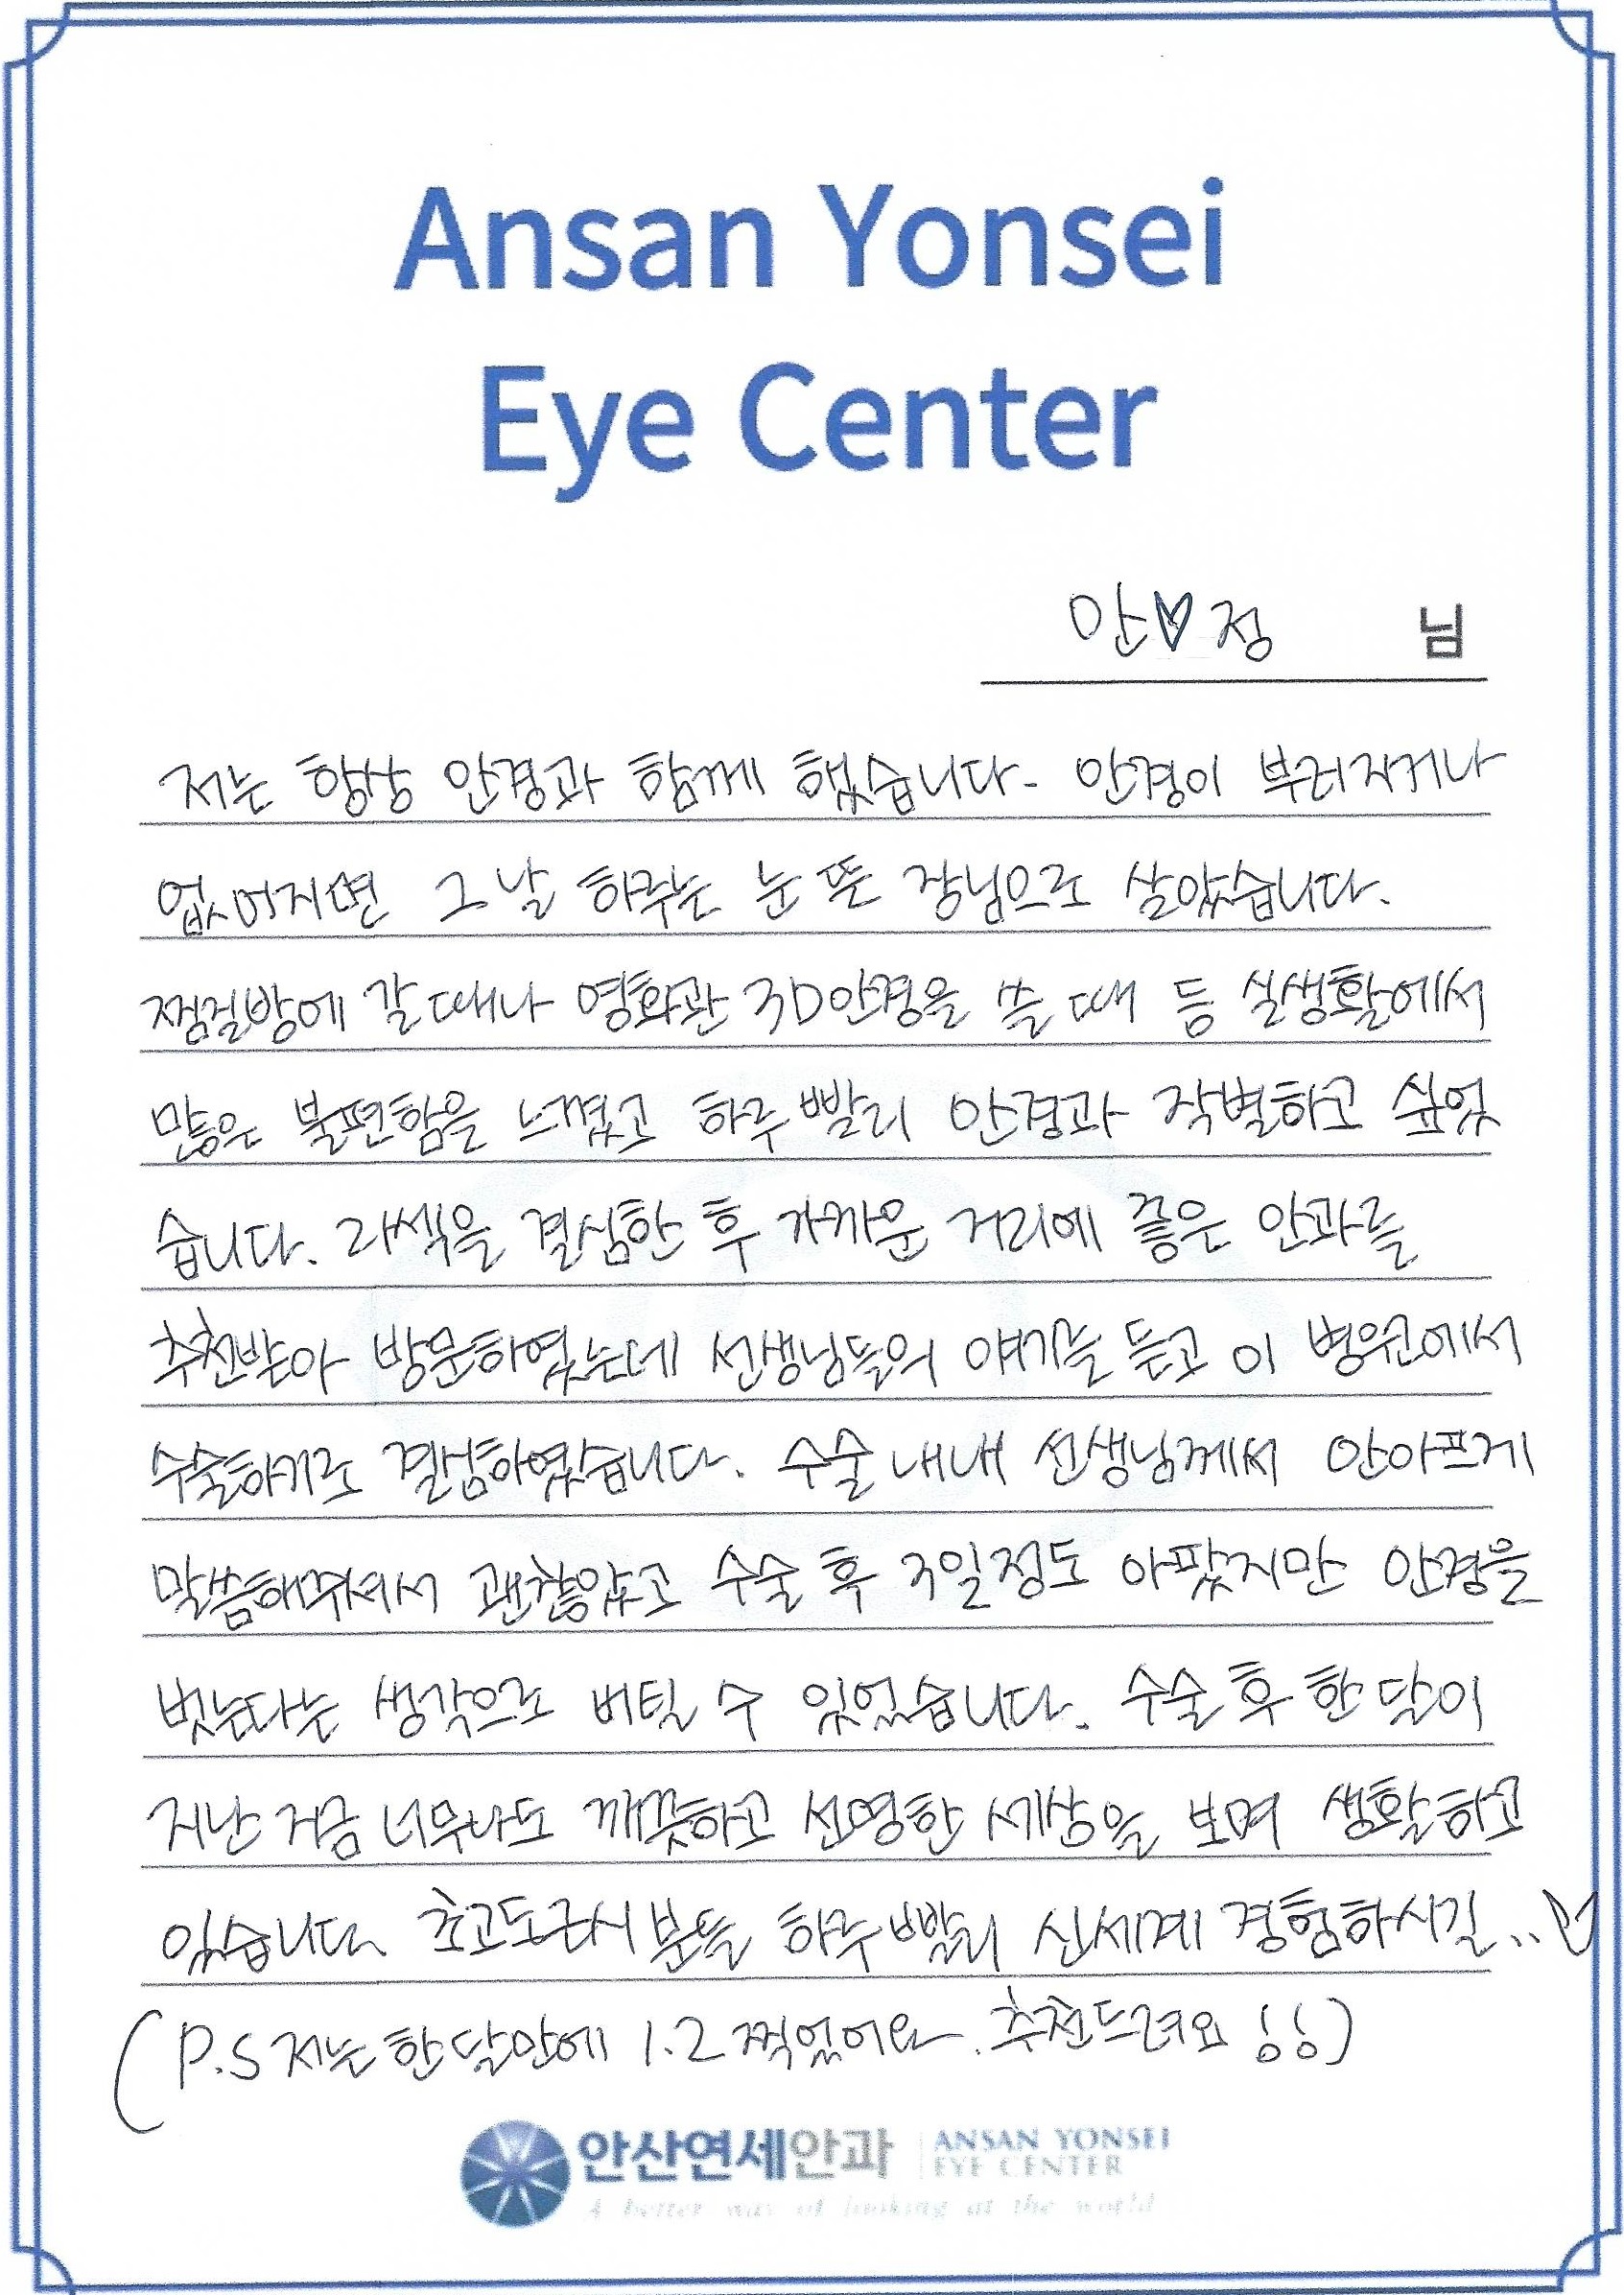 Ansan Yonsei
Eye Center
안♥정 님
저는 항상 안경과 함께 했습니다. 안경이 부러지거나
없어지면 그 날 하루는 눈 뜬 장님으로 살았습니다.
찜질방에 갈 때나 영화관 3D안경을 쓸 때 등 실생활에서
많은 불편함을 느꼈고 하루 빨리 안경과 작별하고 싶었
습니다. 라섹을 결심한 후 가까운 거리에 좋은 안과를
추천받아 방문하였는데 선생님들의 얘기를 듣고 이 병원에서
수술하기로 결심하였습니다. 수술 내내 선생님께서 안아프게
말씀해주셔서 괜찮았고 수술 후 3일정도 아팠지만 안경을
벗는다는 생각으로 버틸 수 있었습니다. 수술 후 한 달이
지난 지금 너무나도 깨끗하고 선명한 세상을 보며 생활하고
있습니다. 초고도근시 분들 하루 빨리 신세계 경험하시길..♡
(P.S 저는 한 달만에 1.2 찍었어요. 추천드려요!!)
안산연세안과 ANSAN YONSEI
EYE CENTER
A better way of looking at the world